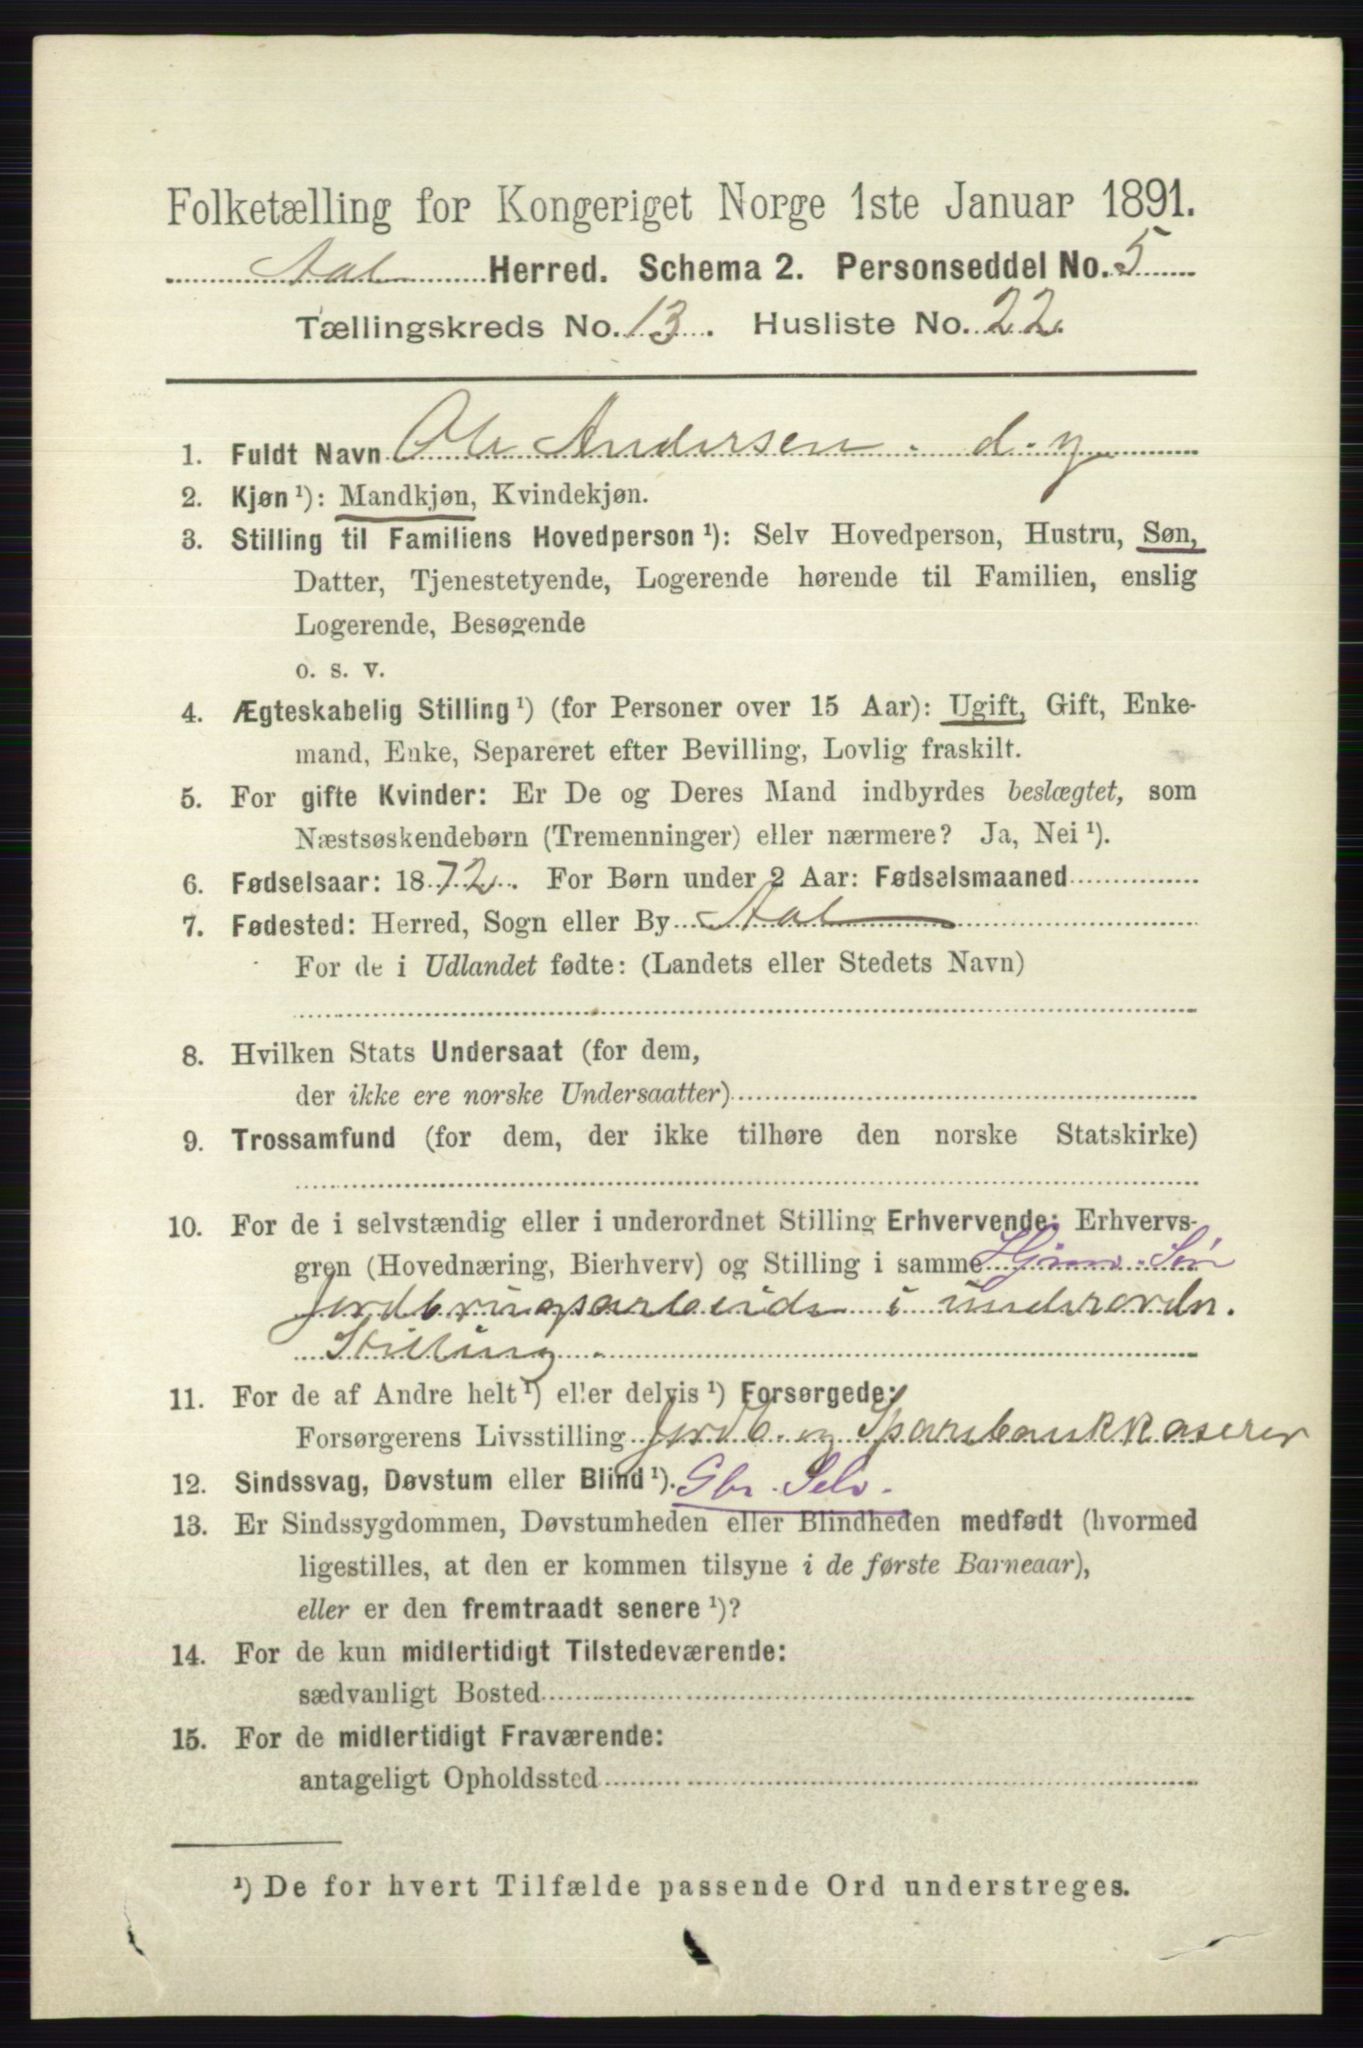 Folketælling for Kongeriget Norge 1ste Januar 1891.
Aal Herred. Schema 2. Personseddel No. 5
Tællingskreds No. 13. Husliste No. 22.
1. Fuldt Navn Ole Andersen d. y.
2. Kjøn ¹): Mandkjøn, Kvindekjøn.
3. Stilling til Familiens Hovedperson ¹): Selv Hovedperson, Hustru, Søn,
Datter, Tjenestetyende, Logerende hørende til Familien, enslig
Logerende, Besøgende
o. s. v.
4. Ægteskabelig Stilling ¹) (for Personer over 15 Aar): Ugift, Gift, Enke-
mand, Enke, Separeret efter Bevilling, Lovlig fraskilt.
5. For gifte Kvinder: Er De og Deres Mand indbyrdes beslægtet, som
Næstsøskendebørn (Tremenninger) eller nærmere? Ja, Nei ¹).
6. Fødselsaar: 1872. For Børn under 2 Aar: Fødselsmaaned
7. Fødested: Herred, Sogn eller By Aal
For de i Udlandet fødte: (Landets eller Stedets Navn)
8. Hvilken Stats Undersaat (for dem,
der ikke ere norske Undersaatter)
9. Trossamfund (for dem, der ikke tilhøre den norske Statskirke)
10. For de i selvstændig eller i underordnet Stilling Erhvervende: Erhvervs-
gren (Hovednæring, Bierhverv) og Stilling i samme Hjmv. Søn
Jordbrugsarbeide i underordn.
Stilling
11. For de af Andre helt ¹) eller delvis ¹) Forsørgede:
Forsørgerens Livsstilling Jordb. og Sparebankkaserer
12. Sindssvag, Døvstum eller Blind ¹). Gbr. Selv.
13. Er Sindssygdommen, Døvstumheden eller Blindheden medfødt (hvormed
ligestilles, at den er kommen tilsyne i de første Barneaar),
eller er den fremtraadt senere ¹)?
14. For de kun midlertidigt Tilstedeværende:
sædvanligt Bosted
15. For de midlertidigt Fraværende:
antageligt Opholdssted
¹) De for hvert Tilfælde passende Ord understreges.